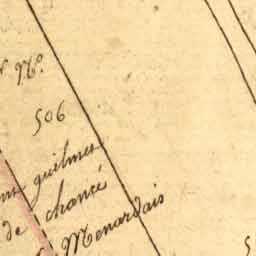 N°
506
guilmer
de chancé
Menardais
5